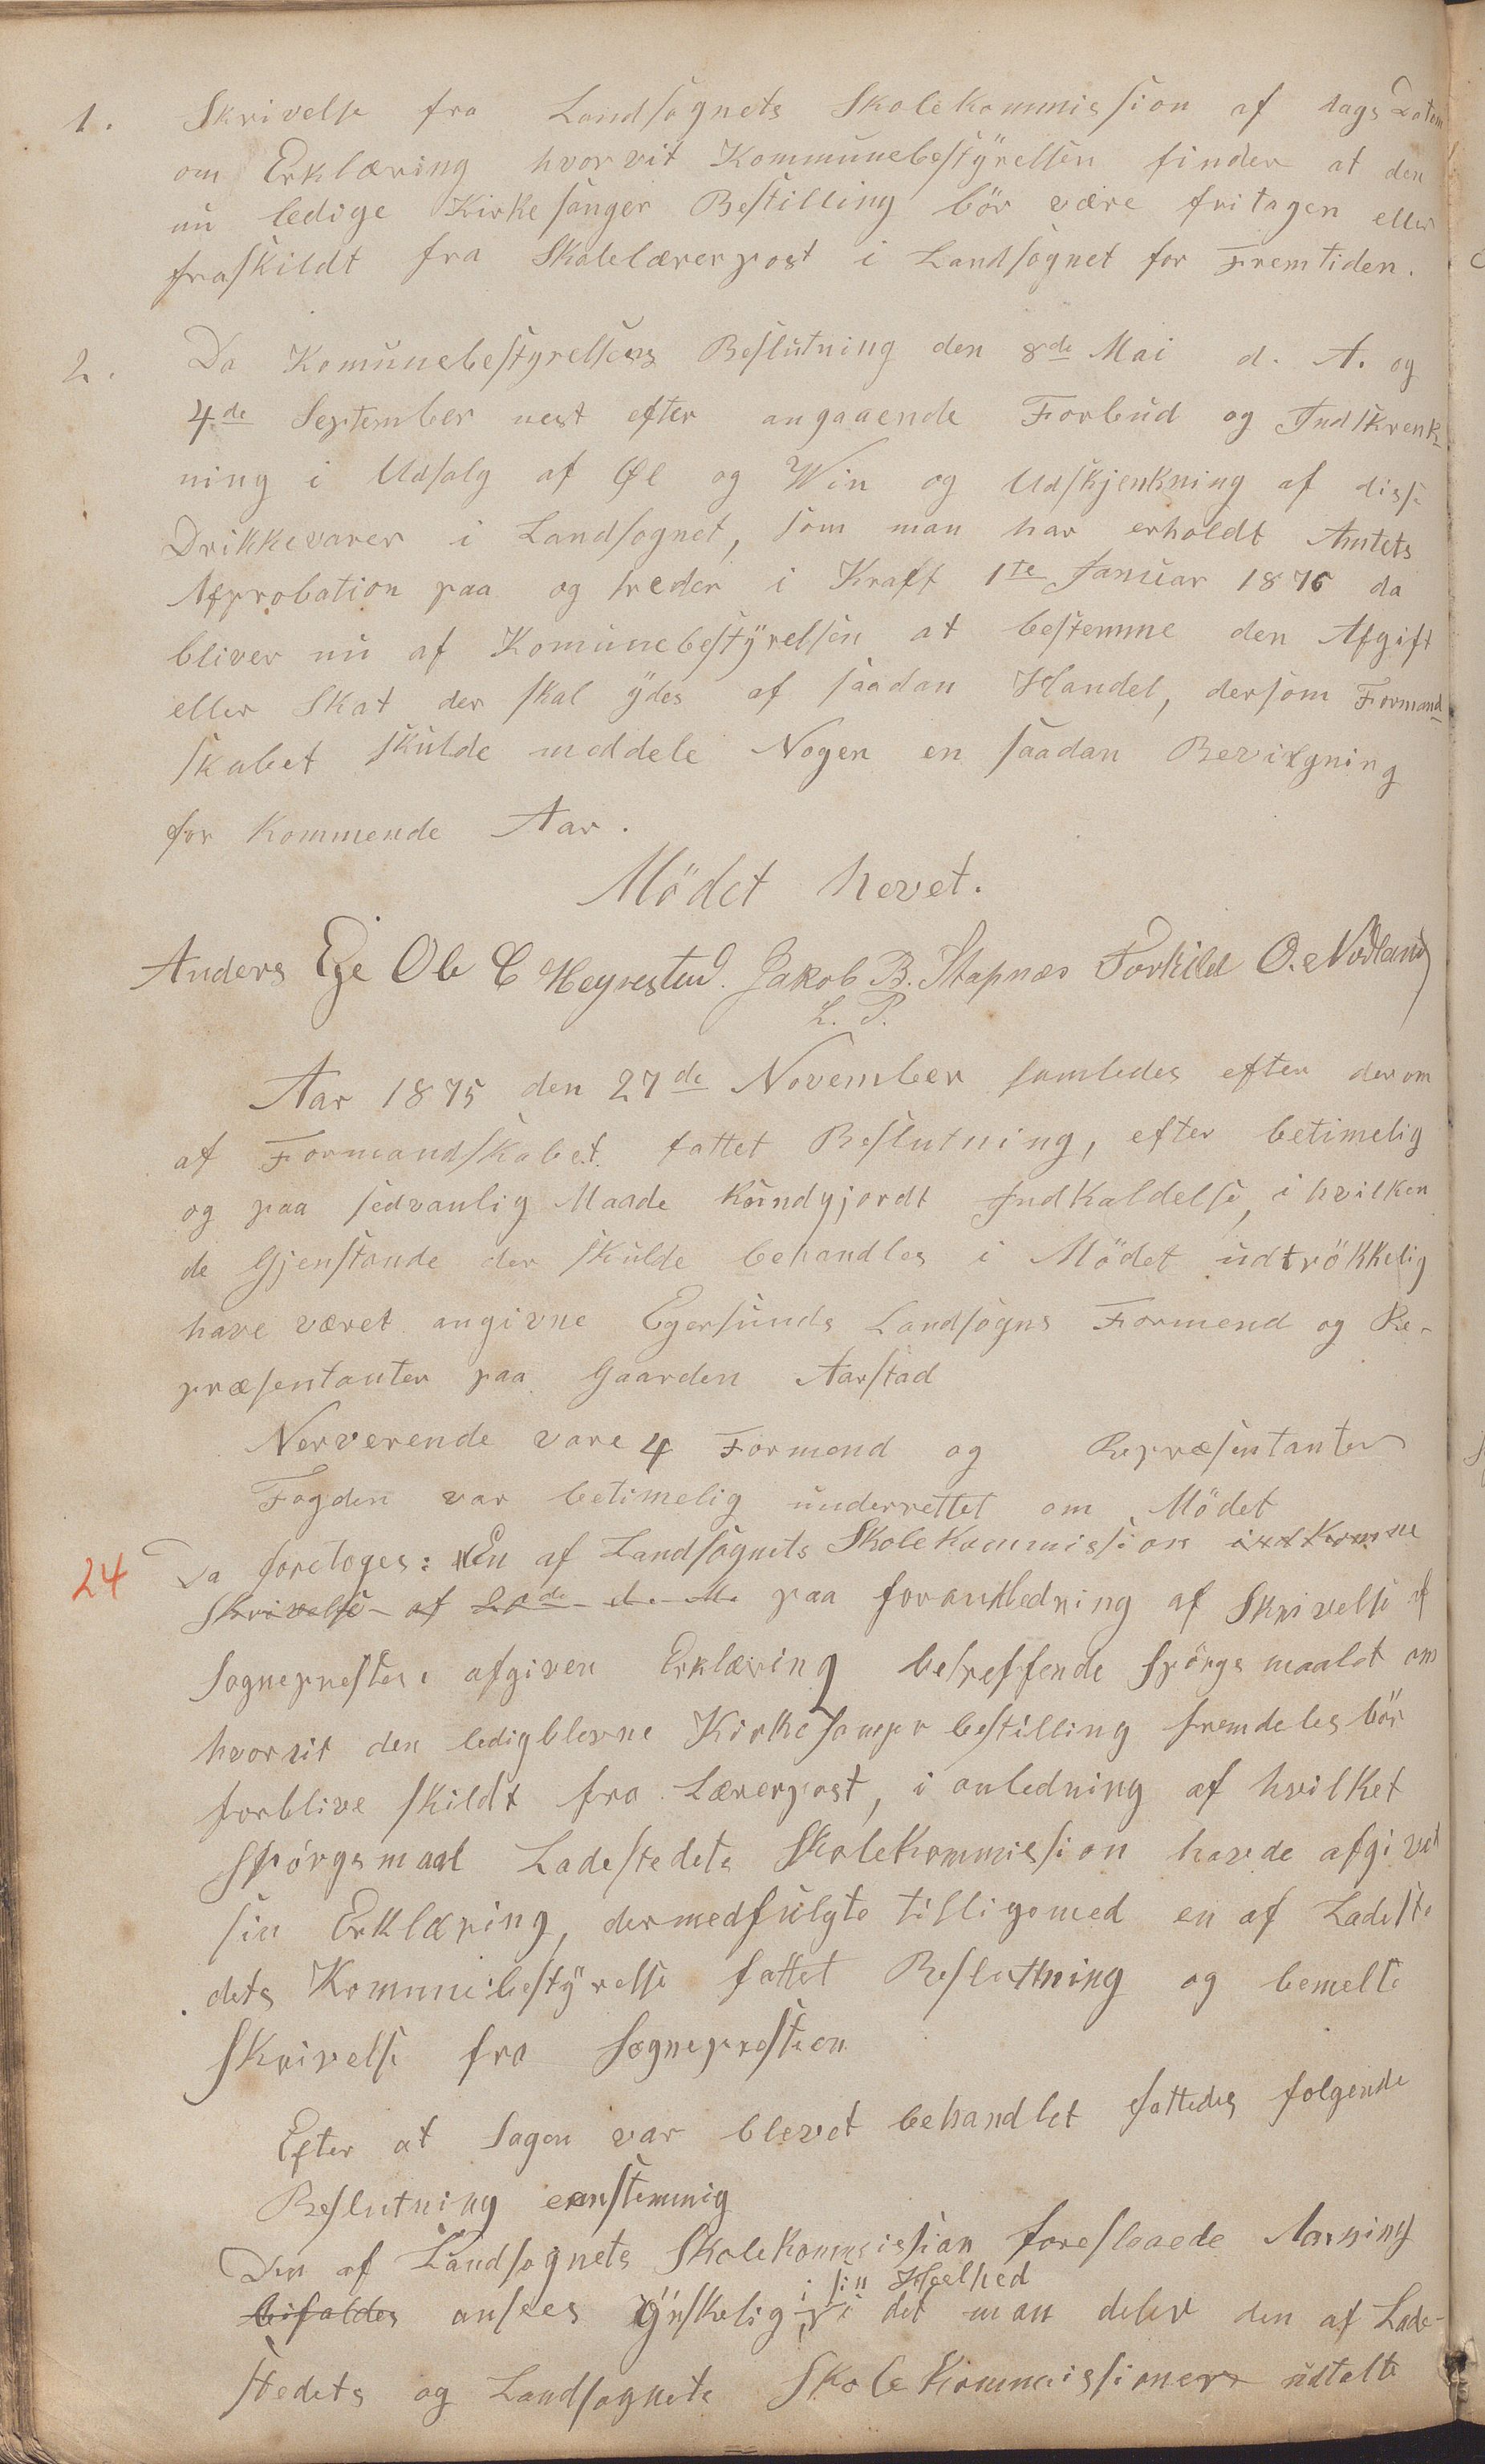 1. Skrivelse fra Landsognets Skolekommission af dags Datum
om Erklæring hvorvit Kommunebestÿrelsen finder at den
nu ledige Kirkesanger Bestilling bör være fritagen eller
fraskildt fra Skolelærerpost i Landsognet for Fremtiden.
2. Da Komunebestyrelsens Beslutning den 8de Mai d. A. og
4de September nest efter angaaende Forbud og Indskrenk-
ning i Udsalg af Øl og Win og Udskjenkning af disse
Drikkevarer i Landsognet, som man har erholdt Amtets
Approbation paa og treder i Kraft 1te Januar 1876 da
bliver nu af Komunebestÿrelsen at bestemme den Afgift
eller Skat der skal ÿdes af saadan Handel, dersom Formand-
skabet skulde meddele Nogen en saadan Bevilgning
for Kommende Aar.
Mödet hevet.
Anders Ege Ole C Hegrestad. Jakob B. Stapnes Torkild O. Nodland
L. P.
Aar 1875 den 27de November samledes efter derom
af Formandskabet fattet Beslutning, efter betimelig
og paa sedvanlig Maade Kundgjordt IndKaldelse, i hvilken
de Gjenstande der skulde behandles i Mödet udtrökkelig
have været angivne Egersunds Landsogns Formend og Re-
præsentanter paa Gaarden Aarstad
Nerverende vare 4 Formend og Repræsentanter
Fogden var betimelig underrettet om Mödet
24 Da foretoges: En af Landsognets Skolekommission indkomne
Skrivelse af de d. M. paa foranledning af Skrivelse af
Sogneprestens afgiven Erklæring betreffende Spörgsmaalet om
hvorvit den ledigblevne Kirkesanger bestilling fremdeles bör
forblive skildt fra Lærerpost, i anledning af hvilket
Spörgsmaal Ladestedets Skolekommission havde afgivet
sin Erklæring, dermedfulgte tilligemed en af Ladeste
dets Kommunebestÿrelse fattet Beslutning og bemelte
Skrivelse fra Sognepresten
Efter at Sagen var blevet behandlet fattedes folgende
Beslutning eenstemmig
Den af Landsognets Skolekommission foreslaaede
i sin Heelhed
bifaldes ansees Ÿnskelig, i det man deler den af Lade-
stedets og Landsognets Skolekommissioner udtalte